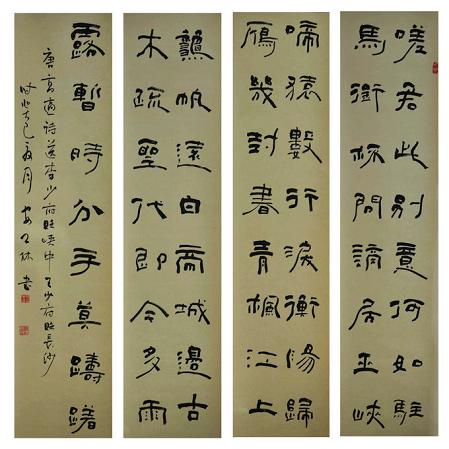 嗟君此別意何如駐
馬銜杯問謫居巫峽
啼猿數行淚衡陽歸
鴈幾封書青楓江上
龝帆遠白帝城邊古
木疏聖代即今多雨
露暫時分手莫躊躇
唐高適詩送李少府貶峽中王少府貶長沙
巳 月 林書